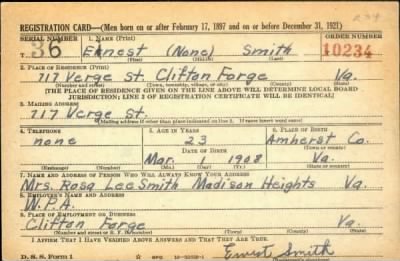 REGISTRATION CARD—(Men born on or after February 17, 1897 and on or before December 31, 1921)
SERIAL NUMBER 1. NAME (Print) ORDER NUMBER
T- 36 Ernest (None) Smith 10234
(First) (Middle) (Last)
2. PLACE OF RESIDENCE (Print)
717 Verge St. Clifton Forge Va.
(Number and street) (Town, township, village, or city) (County) (State)
[THE PLACE OF RESIDENCE GIVEN ON THE LINE ABOVE WILL DETERMINE LOCAL BOARD
JURISDICTION; LINE 2 OF REGISTRATION CERTIFICATE WILL BE IDENTICAL]
3. MAILING ADDRESS
717 Verge St.
[Mailing address if other than place indicated on line 2. If same insert word same]
4. TELEPHONE 5. AGE IN YEARS 6. PLACE OF BIRTH
none 23 Amherst Co.
DATE OF BIRTH (Town or county)
Mar. 1 1908 Va.
(Exchange) (Number) (Mo.) (Day) (Yr.) (State or country)
7. NAME AND ADDRESS OF PERSON WHO WILL ALWAYS KNOW YOUR ADDRESS
Mrs. Rosa Lee Smith Madison Heights Va.
8. EMPLOYER'S NAME AND ADDRESS
W.P.A.
9. PLACE OF EMPLOYMENT OR BUSINESS
Clifton Forge Va.
(Number and street or R. F. D. number) (Town) (County) (State)
I AFFIRM THAT I HAVE VERIFIED ABOVE ANSWERS AND THAT THEY ARE TRUE.
D. S. S. Form 1 Ernest Smith